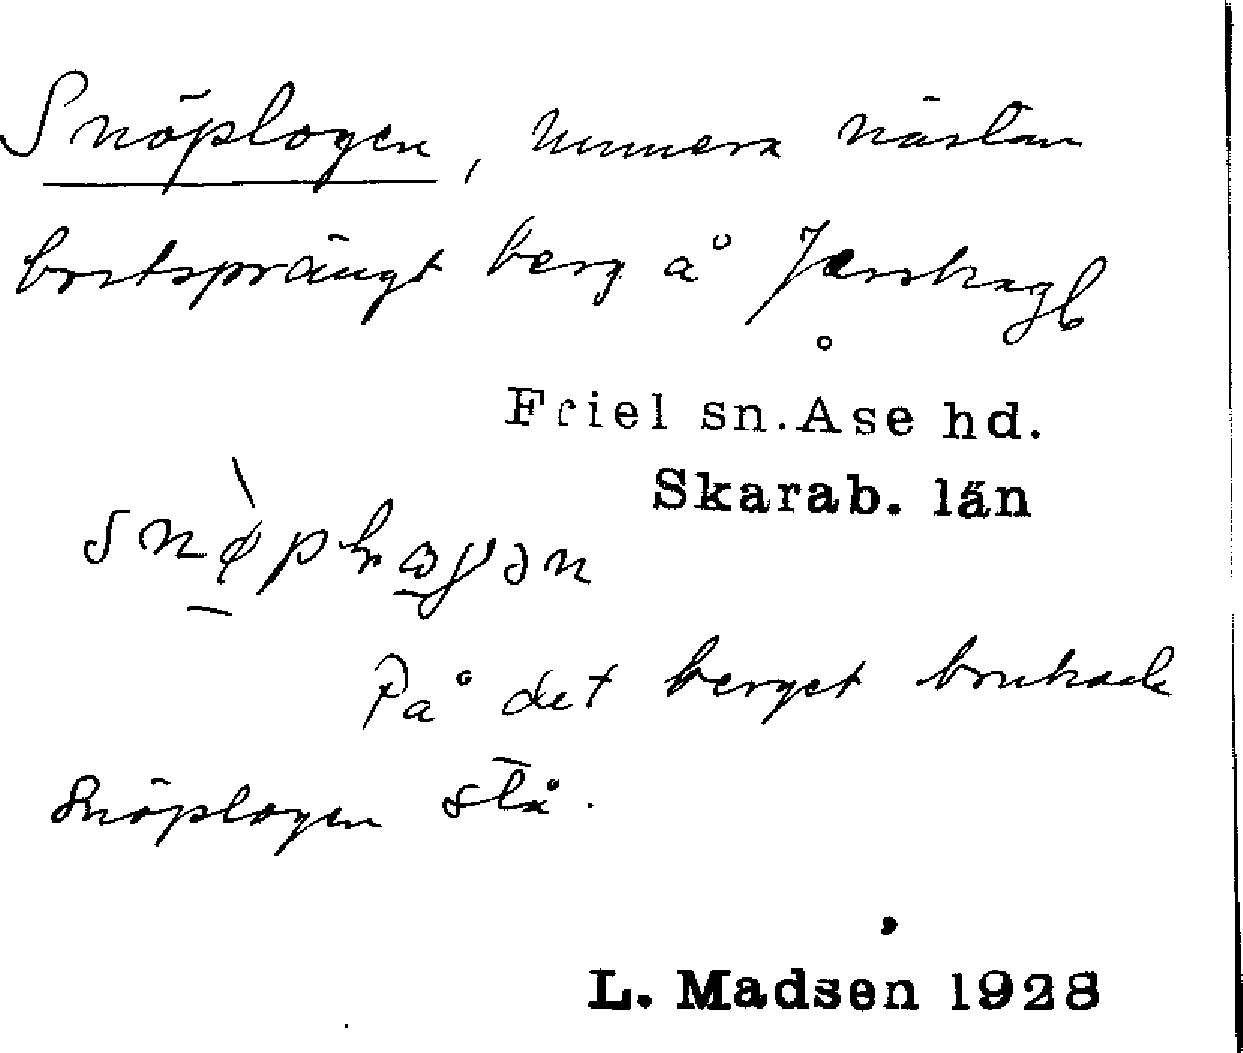 Snöplogen, numera nästan
bortsprängt berg å
Friel sn. Åse hd.
Skarab. län
På det berget brukade
Snöplogen stå.
L. Madsen 1928